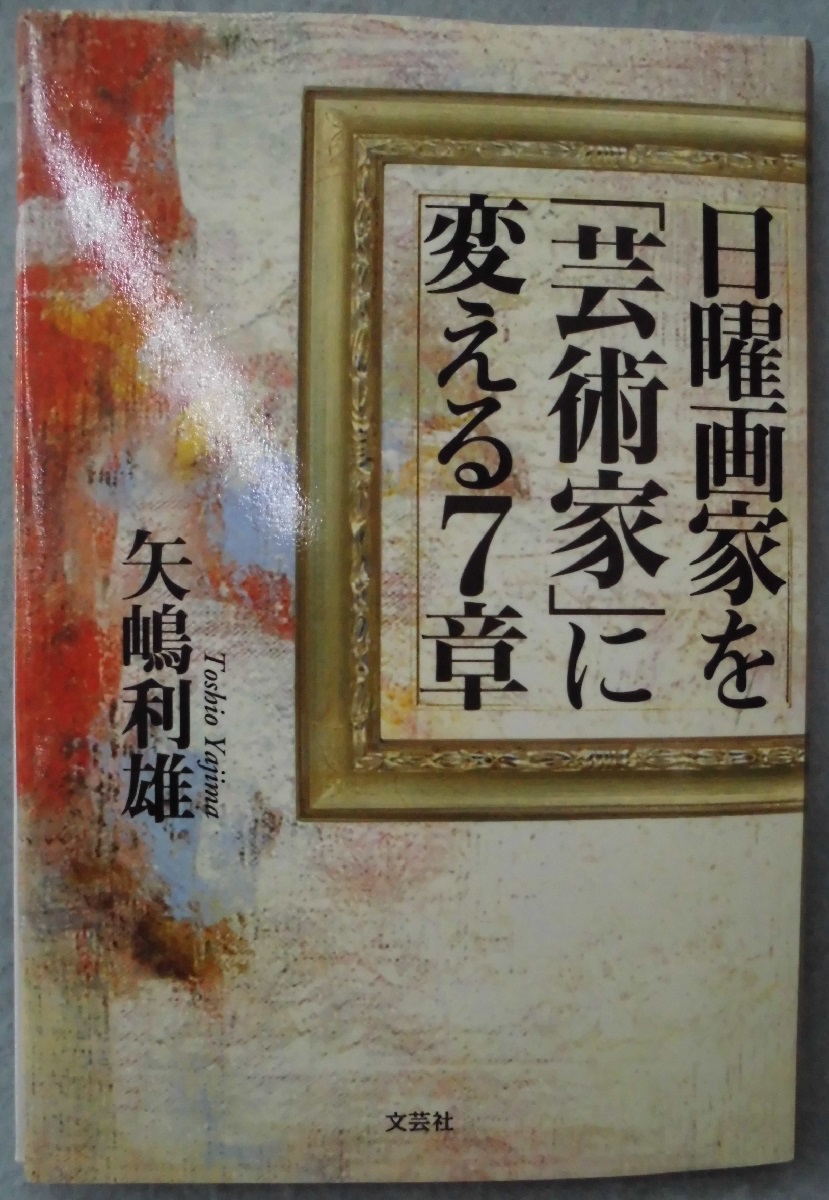 日曜画家を
「芸術家」に
変える7章
矢嶋利雄
Toshio Yajima
文芸社